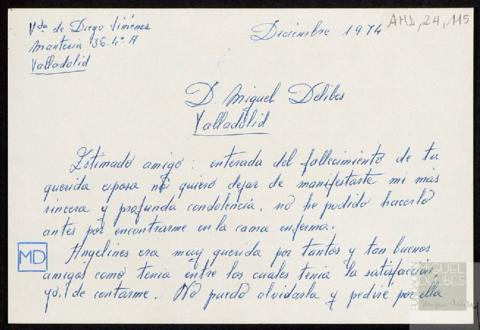 Vda de Diego Jiménez
Mantería 36. 4º A
Valladolid
Diciembre 1974
AMD, 24, 115
D. Miguel Delibes
Valladolid
Estimado amigo: enterada del fallecimiento de tu
querida esposa no quiero dejar de manifestarte mi más
sincera y profunda condolencia, no he podido hacerlo
antes por encontrarme en la cama enferma.
MD
Angelines era muy querida por tantos y tan buenos
amigos como tenía entre los cuales tenía la satisfacción
yo, de contarme. No puedo olvidarla y pediré por ella
MIGUEL
DELIBES